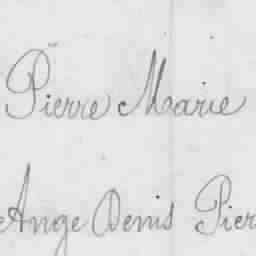 Pierre Marie
Ange Denis Pier